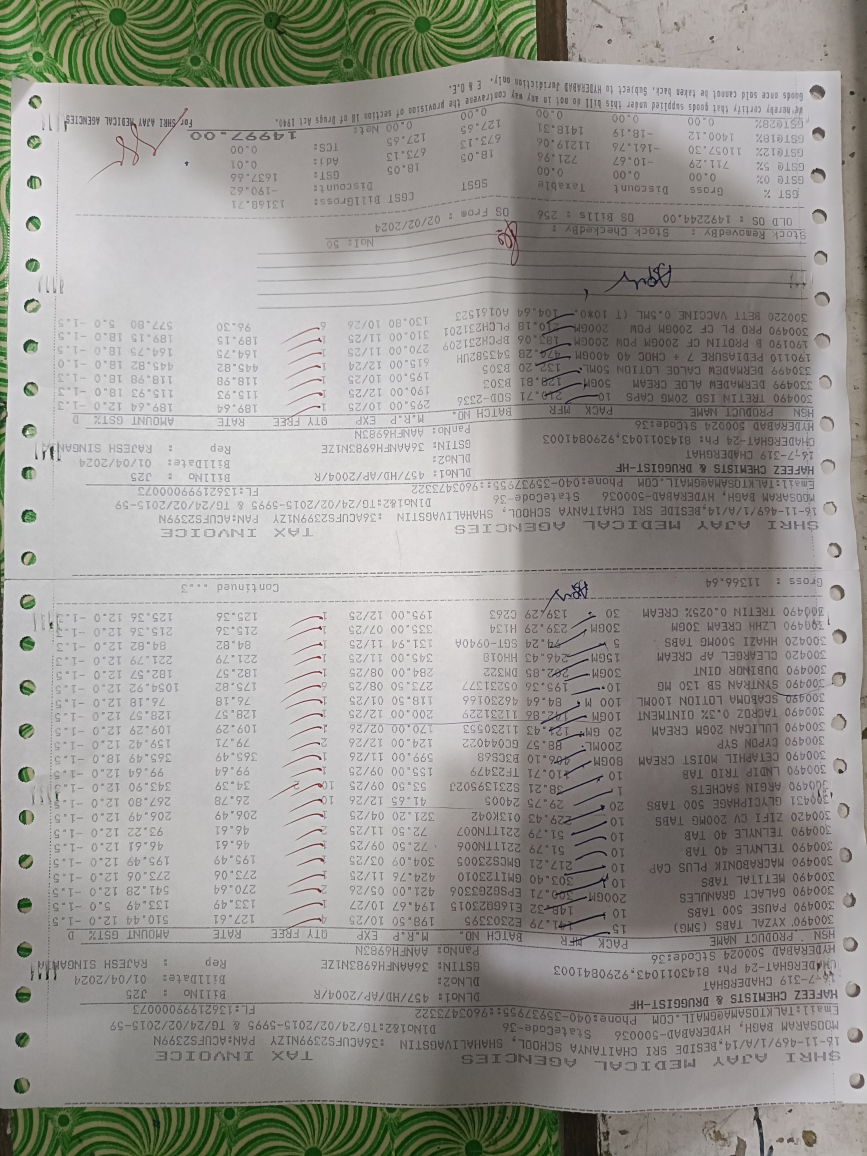 SHRI AJAY MEDICAL AGENCIES TAX INVOICE
16-11-469/1/A/14,BESIDE SRI CHAITANYA SCHOOL, SHAHALIVAGSTIN :36ACUFS2399N1ZY PAN:ACUFS2399N
MOOSARAM BAGH, HYDERABAD-500036 StateCode-36 D1No1&2:TG/24/02/2015-5995 & TG/24/02/2015-59
Email:TALKTOSAMA@GMAIL.COM Phone:040-35937955::9603473322 FL:13621999000073
HAFEEZ CHEMISTS & DRUGGIST-HF DLNo1: 457/HD/AP/2004/R BillNo : J25
16-7-319 CHADERGHAT DLNo2: BillDate: 01/04/2024
CHADERGHAT-24 Ph: 8143011043,9290841003 GSTIN: 36AANFH6983N1ZE Rep : RAJESH SINGAM
HYDERABAD 500024 StCode:36 PanNo: AANFH6983N
HSN PRODUCT NAME PACK MFR BATCH NO. M.R.P EXP QTY FREE RATE AMOUNT GST% D
300490 XYZAL TABS (5MG) 15 141.79 EZ3036 198.50 10/25 4 127.61 510.44 12.0 -1.5
300490 PAUSE 500 TABS 10 148.32 E16G023015 194.67 10/27 1 133.49 133.49 5.0 -1.5
300490 GALACT GRANULES 200GM 300.71 EPSG2G23306 421.00 05/26 2 270.64 541.28 12.0 -1.5
300490 METITAL TABS 10 303.40 GMIT23010 424.76 11/25 1 273.06 273.06 12.0 -1.5
300490 MACRABONIK PLUS CAP 10 217.21 GMCS23005 304.09 03/25 1 195.49 195.49 12.0 -1.5
300490 TELNYLE 40 TAB 10 51.79 22ITTN006 72.50 09/25 1 46.61 46.61 12.0 -1.5
300490 TELNYLE 40 TAB 10 51.79 22ITTN007 72.50 11/25 2 46.61 93.22 12.0 -1.5
300420 ZIFI CV 200MG TABS 10 229.43 013K042 321.20 04/25 1 206.49 206.49 12.0 -1.5
300431 GLYCIPHAGE 500 TABS 20 29.75 24005 41.65 12/26 10 26.78 267.80 12.0 -1.5
300490 ARGIN SACHETS 1 38.21 SZ31395023 53.50 09/25 10 2 34.39 343.90 12.0 -1.5
300490 LNDIP TRIO TAB 10 110.71 TF23479 155.00 09/25 1 99.64 99.64 12.0 -1.5
300490 CETAPHIL MOIST CREAM 80GM 406.10 B3C568 599.00 11/26 1 365.49 365.49 18.0 -1.5
300490 CYPON SYP 200ML 88.57 GC04022 124.00 12/26 2 79.71 159.42 12.0 -1.5
300490 LULICAN 20GM CREAM 20 GM 121.43 11230553 170.00 02/26 1 109.29 109.29 12.0 -1.5
300490 TACROZ 0.3% OINTMENT 10GM 142.86 11231229 200.00 12/25 1 128.57 128.57 12.0 -1.5
300490 SCABOMA LOTION 100ML 100 M 84.64 46230166 118.50 01/25 1 76.18 76.18 12.0 -1.5
300490 SYNTRAN SB 130 MG 10 195.36 05231377 273.50 08/25 6 175.82 1054.92 12.0 -1.5
300490 DUBINOR OINT 30GM 202.85 DM322 284.00 08/25 1 182.57 182.57 12.0 -1.5
300420 CLEARGEL AP CREAM 15GM 246.43 HH018 345.00 11/25 1 221.79 221.79 12.0 -1.3
300420 HHAZI 500MG TABS 5 94.24 SGT-0940A 131.94 11/25 1 84.82 84.82 12.0 -1.3
300490 LZHH CREAM 30GM 30GM 239.29 H134 335.00 07/25 1 215.36 215.36 12.0 -1.3
300490 TRETIN 0.025% CREAM 30 139.29 C263 195.00 12/25 1 125.36 125.36 12.0 -1.3
Gross : 11366.64 Continued ...3
SHRI AJAY MEDICAL AGENCIES TAX INVOICE
16-11-469/1/A/14,BESIDE SRI CHAITANYA SCHOOL, SHAHALIVAGSTIN :36ACUFS2399N1ZY PAN:ACUFS2399N
MOOSARAM BAGH, HYDERABAD-500036 StateCode-36 D1No1&2:TG/24/02/2015-5995 & TG/24/02/2015-59
Email:TALKTOSAMA@GMAIL.COM Phone:040-35937955::9603473322 FL:13621999000073
HAFEEZ CHEMISTS & DRUGGIST-HF DLNo1: 457/HD/AP/2004/R BillNo : J25
16-7-319 CHADERGHAT DLNo2: BillDate: 01/04/2024
CHADERGHAT-24 Ph: 8143011043,9290841003 GSTIN: 36AANFH6983N1ZE Rep : RAJESH SINGAM
HYDERABAD 500024 StCode:36 PanNo: AANFH6983N
HSN PRODUCT NAME PACK MFR BATCH NO. M.R.P EXP QTY FREE RATE AMOUNT GST% D
300490 TRETIN ISO 20MG CAPS 10 210.71 SOD-2336 295.00 10/25 1 189.64 189.64 12.0 -1.3
330499 DERMADEW ALOE CREAM 50GM 128.81 B303 190.00 12/25 1 115.93 115.93 18.0 -1.3
330499 DERMADEW CALOE LOTION 50ML 132.20 B305 195.00 10/25 1 118.98 118.98 18.0 -1.3
190110 PEDIASURE 7 + CHOC 40 400GM 474.28 54358UH 615.00 12/24 1 445.82 445.82 18.0 -1.5
190190 B PROTIN CF 200GM POW 200GM 183.06 BPCH231209 270.00 11/25 1 164.75 164.75 18.0 -1.5
300490 PRO PL CF 200GM POW 200GM 210.18 PLCH231201 310.00 11/25 1 189.15 189.15 18.0 -1.5
300220 BETT VACCINE 0.5ML (T 1080 104.64 A0161523 130.80 10/26 6 96.30 577.80 5.0 -1.5
NoI: 50
Stock RemovedBy : Stock CheckedBy :
OLD OS : 1492244.00 OS Bills : 256 OS From : 02/02/2024
GST % Gross Discount Taxable SGST CGST BillGross: 13168.71
GST@ 0% 0.00 0.00 0.00 Discount -190.62
GST@ 5% 711.29 -10.67 721.96 18.05 18.05 GST: 1637.66
GST@12% 11057.30 -161.76 11219.06 673.13 673.13 Adj: 0.01
GST@18% 1400.12 -18.19 1418.31 127.65 127.65 TCS: 0.00
GST@28% 0.00 0.00 0.00 0.00 0.00 Net: 14997.00
We hereby certify that goods supplied under this bill do not in any way contravene the provision of section 18 of Drugs Act 1940. For SHRI AJAY MEDICAL AGENCIES
Goods once sold cannot be taken back. Subject to HYDERABAD Juridiction only. E & O.E.